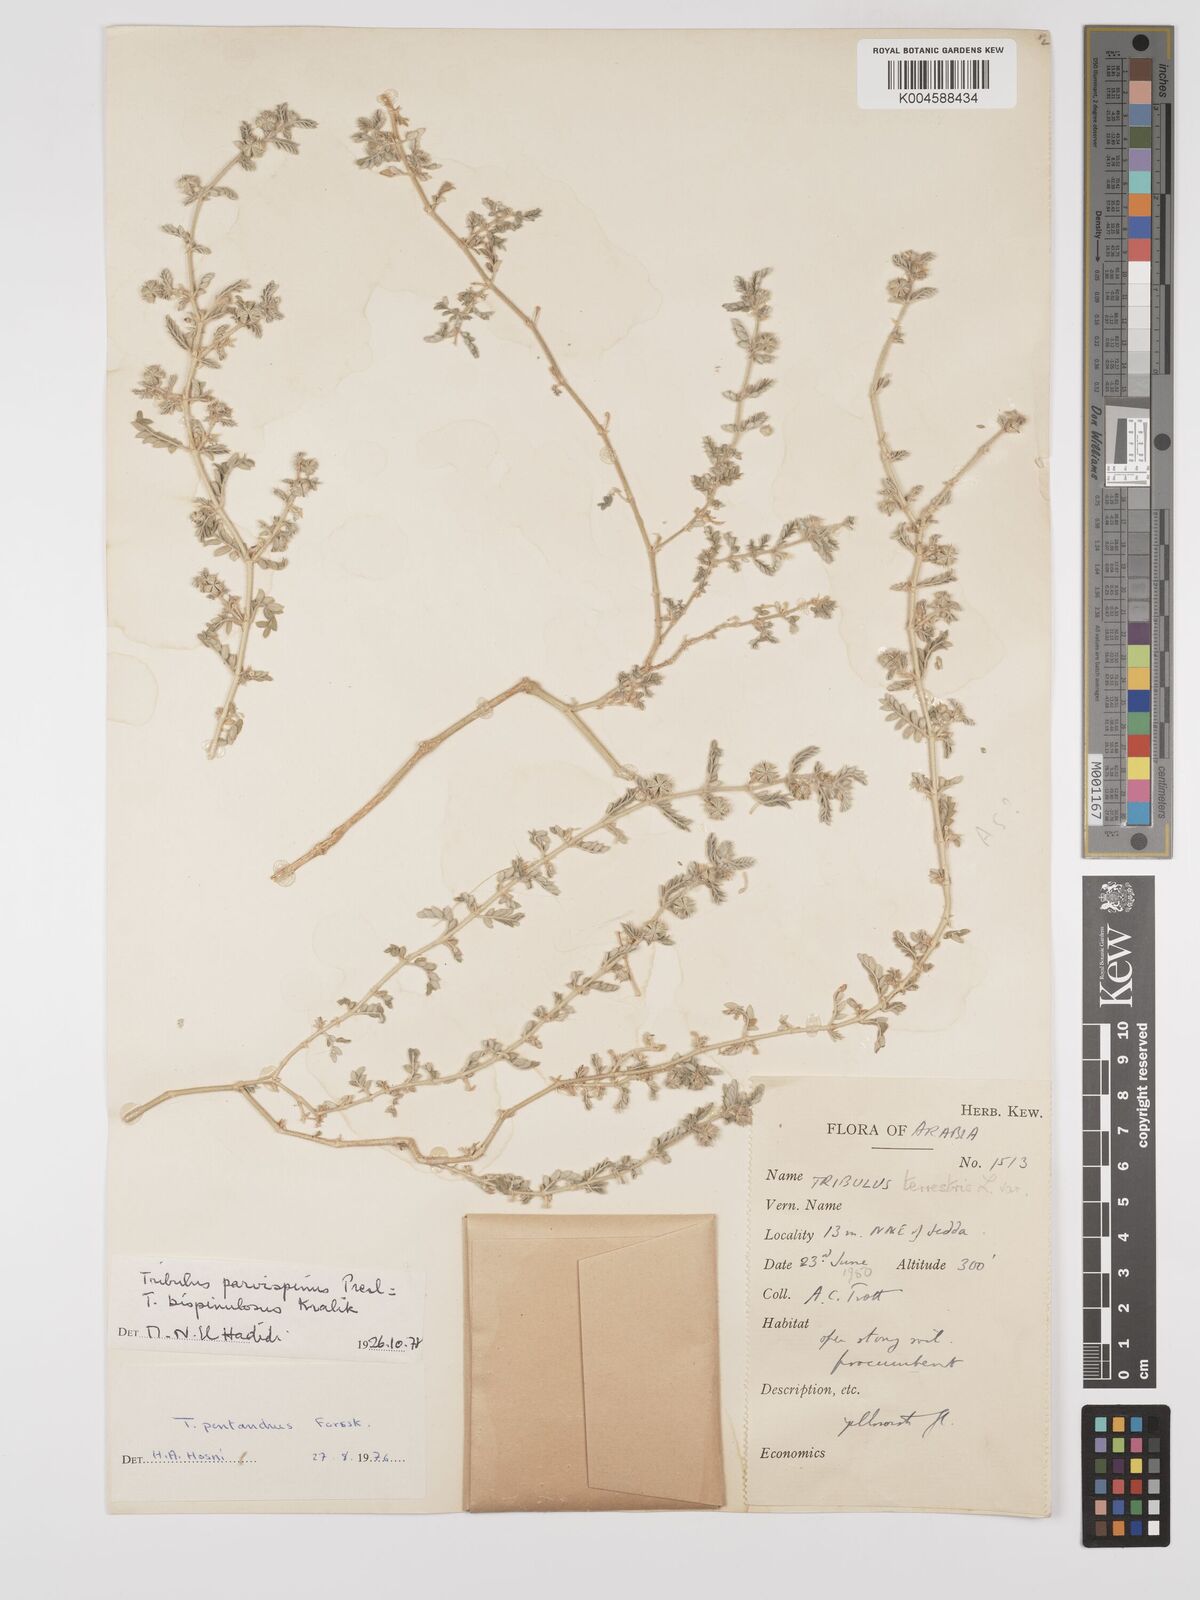 ROYAL BOTANIC GARDENS KEW
K004588434
HERB. KEW.
FLORA OF ARABIA
No. 1513
Name TRIBULUS terrestris L. var.
Vern. Name
Locality 13 m. NNE of Jedda.
Date 23rd June 1950 Altitude 300'
Coll. A.C. Trott
Habitat open stony soil.
procumbent
Description, etc.
yellowish fl.
Economics
Tribulus parvispinus Presl =
T. bispinulosus Kralik
DET M. N. El Hadidi 1926.10.78
T. pentandrus Forssk.
DET. H.A. Hosni 27.8.1976
A S?
inches
centimeters
Density
Don Williams
M001167
Royal Botanic Gardens
Kew
copyright reserved
0 1 2 3 4 5 6 7 8 9 10
cm